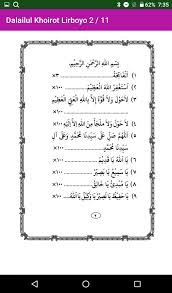 7:35
Dalailul Khoirot Lirboyo 2 / 11
بِسْمِ اللهِ الرَّحْمٰنِ الرَّحِيْمِ
١) اَلْفَاتِحَةُ ×٣
٢) أَسْتَغْفِرُ اللهَ الْعَظِيْمَ ×١٠٠
٣) لَاحَوْلَ وَلَا قُوَّةَ إِلَّا بِاللهِ الْعَلِيِّ الْعَظِيْمِ
×١٠٠
٤) لَا حَوْلَ وَلَا مَلْجَأَ مِنَ اللهِ إِلَّا إِلَيْهِ ×١٠٠
٥) اَللّٰهُمَّ صَلِّ عَلَى سَيِّدِنَا مُحَمَّدٍ وَعَلَى آلِ
سَيِّدِنَا مُحَمَّدٍ ×١٠٠
٦) يَا اَللهُ يَا قَدِيْمُ ×١٠٠
٧) يَا سَمِيْعُ يَا بَصِيْرُ ×١٠٠
٨) يَا مُبْدِئُ يَا خَالِقُ ×١٠٠
٩) يَا حَفِيْظُ يَا نَصِيْرُ يَا وَكِيْلُ يَا اَللهُ ×١٠٠